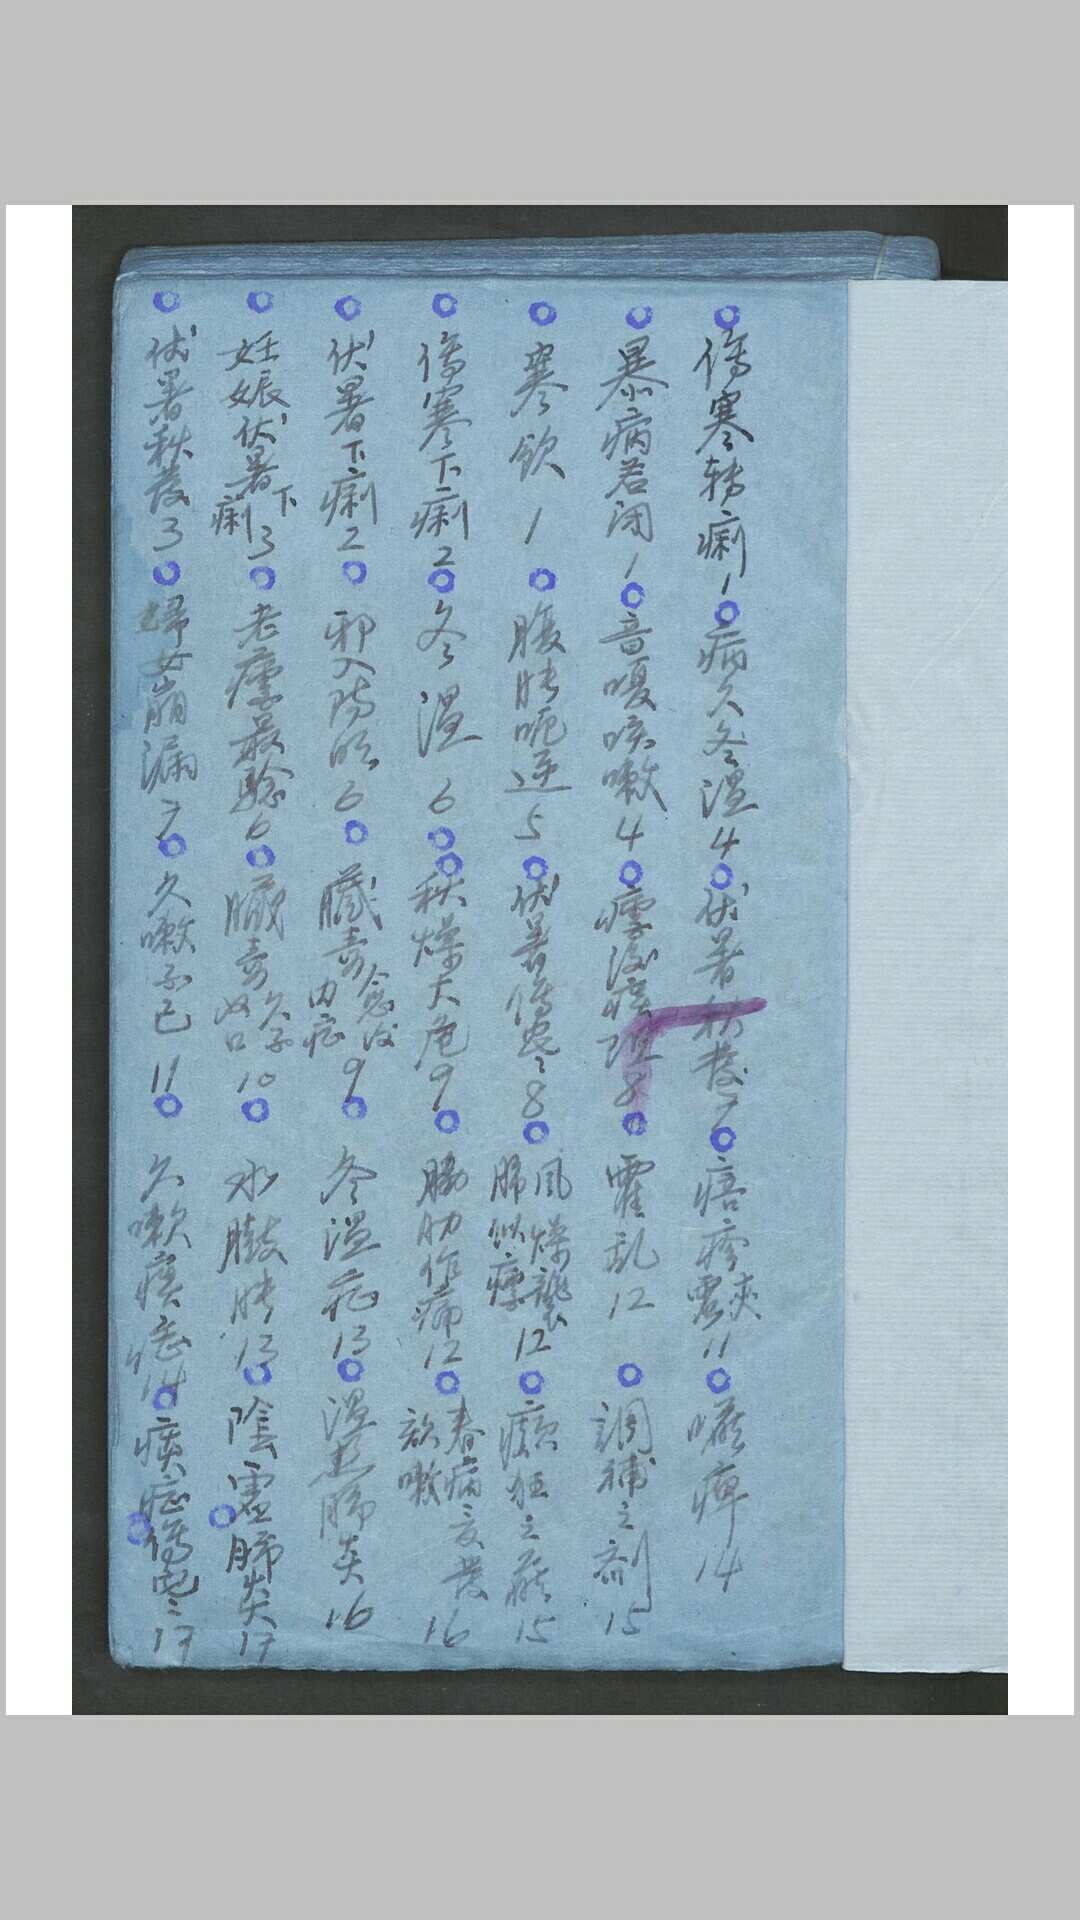 傷寒轉痢 1
病久冬溫 4
伏暑秋發 7
痦疹夾虛 11
喉痺 14
暴病若閉 1
音嗄咳嗽 4
8
霍乱 12
調補之劑 15
寒飲 1
腹脹呃逆 5
伏暑傷 8
風燥襲肺似瘵 12
癲狂之症 15
傷寒下痢 2
冬溫 6
秋燥大危 9
脇肋作痛 12
春病咳嗽 16
伏暑下痢 2
邪入陽明 6
臟毒愈後內症 9
冬溫症 13
溫熱肺炎 16
妊娠伏暑下痢 3
老瘧最驗 6
臟毒久不收口 10
水臌脹 13
陰虛肺炎 17
伏暑秋發 3
婦女崩漏 7
久嗽不已 11
久嗽痰 14
痰症傷 17